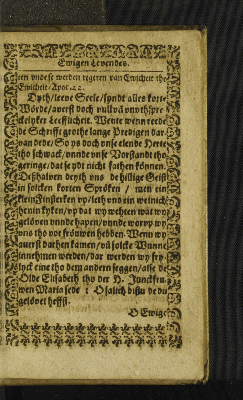 Ewigen Levendes.
ren vnde se werden regeren van Ewicheit tho
Ewicheit / Apoc. 22.
Dyth / leeve Seele / syndt alles korte
Wörde / averst doch vull vnvthspre
ckelyker Leefflicheit. Wente wenn
de Schrifft grothe lange Predigen dar
van dede / So ys doch vnse elende Herte
tho schwack / vnnde vnse Vorstandt tho
geringe / dat se ydt nicht fathen können.
Deßhalven deyth vns de hillige Geist
in solcken korten Spröken / men ein
klein Finsterken vp / leth vns ein weinich
henin kyken / vp dat wy wehten wat wy
gelöven vnnde hapen / vnnde worvp wy
vns tho vor fröuwen hebben. Wenn wy
averst darhen kamen / vñ solcke Wunne
innehmen werden / dar werden wy fry
lyck eine tho dem andern seggen / alse de
Olde Elisabeth tho der H. Junckfru
wen Maria sede : O salich bistu de du
gelövet heffst.
O Ewige